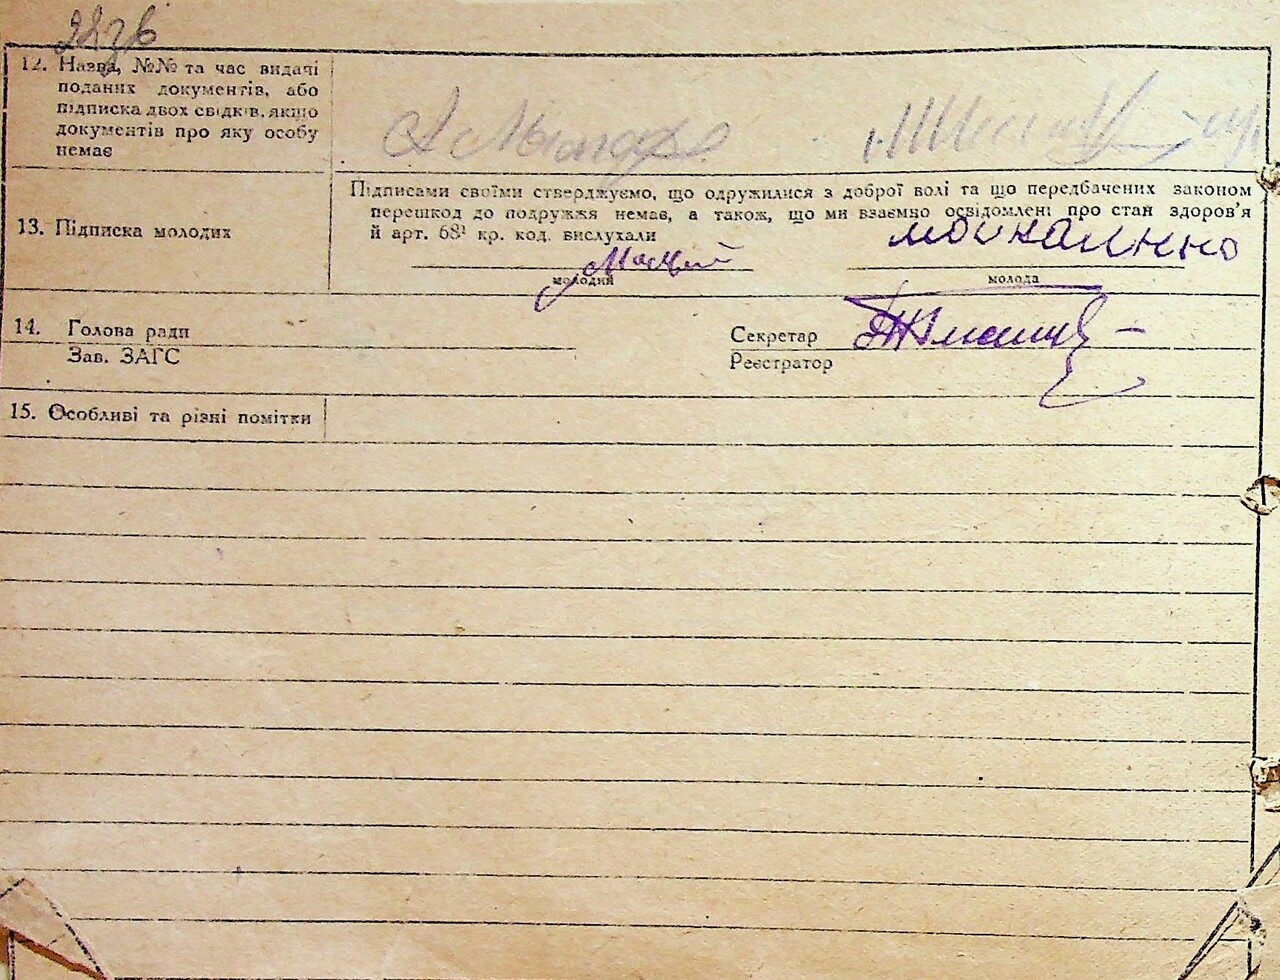 12. Назва, №№ та час видачі
поданих документів, або
підписка двох свідків, якщо
документів про яку особу
немає
Підписами своїми стверджуємо, що одружилися з доброї волі та що передбачених законом
перешкод до подружжя немає, а також, що ми взаємно освідомлені про стан здоров'я
й арт. 68¹ кр. код. вислухали
13. Підписка молодих
молодий
молода
14. Голова ради
Секретар
Зав. ЗАГС
Реєстратор
15. Особливі та різні помітки